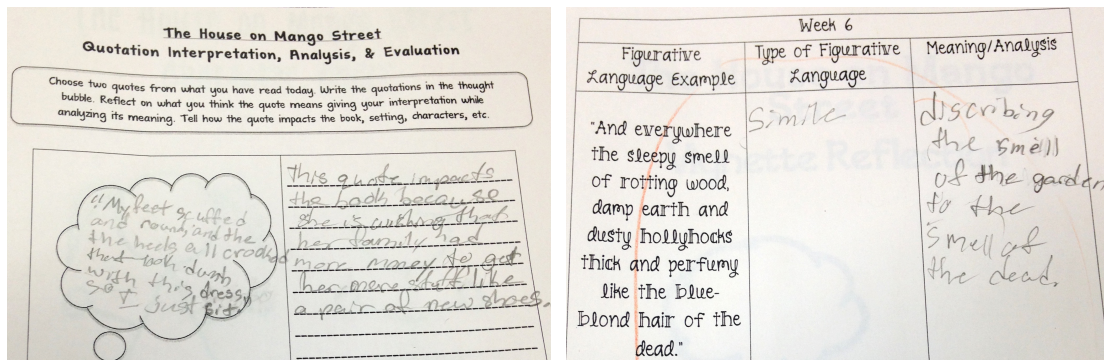 The House on Mango Street
Quotation Interpretation, Analysis, & Evaluation
Choose two quotes from what you have read today. Write the quotations in the thought
bubble. Reflect on what you think the quote means giving your interpretation while
analyzing its meaning. Tell how the quote impacts the book, setting, characters, etc.
"My feet scuffed
and round, and the
the heels all crooked
that look dumb
with this dress,
so I just sit.
this quote impacts
the book because
she is wishing that
her family had
more money to get
her more stuff like
a pair of new shoes.
Week 6
Figurative
Language Example
Type of Figurative
Language
Meaning/Analysis
"And everywhere
the sleepy smell
of rotting wood,
damp earth and
dusty hollyhocks
thick and perfumy
like the blue-
blond hair of the
dead."
Simile
discribing
the smell
of the garden
to the
smell of
the dead.